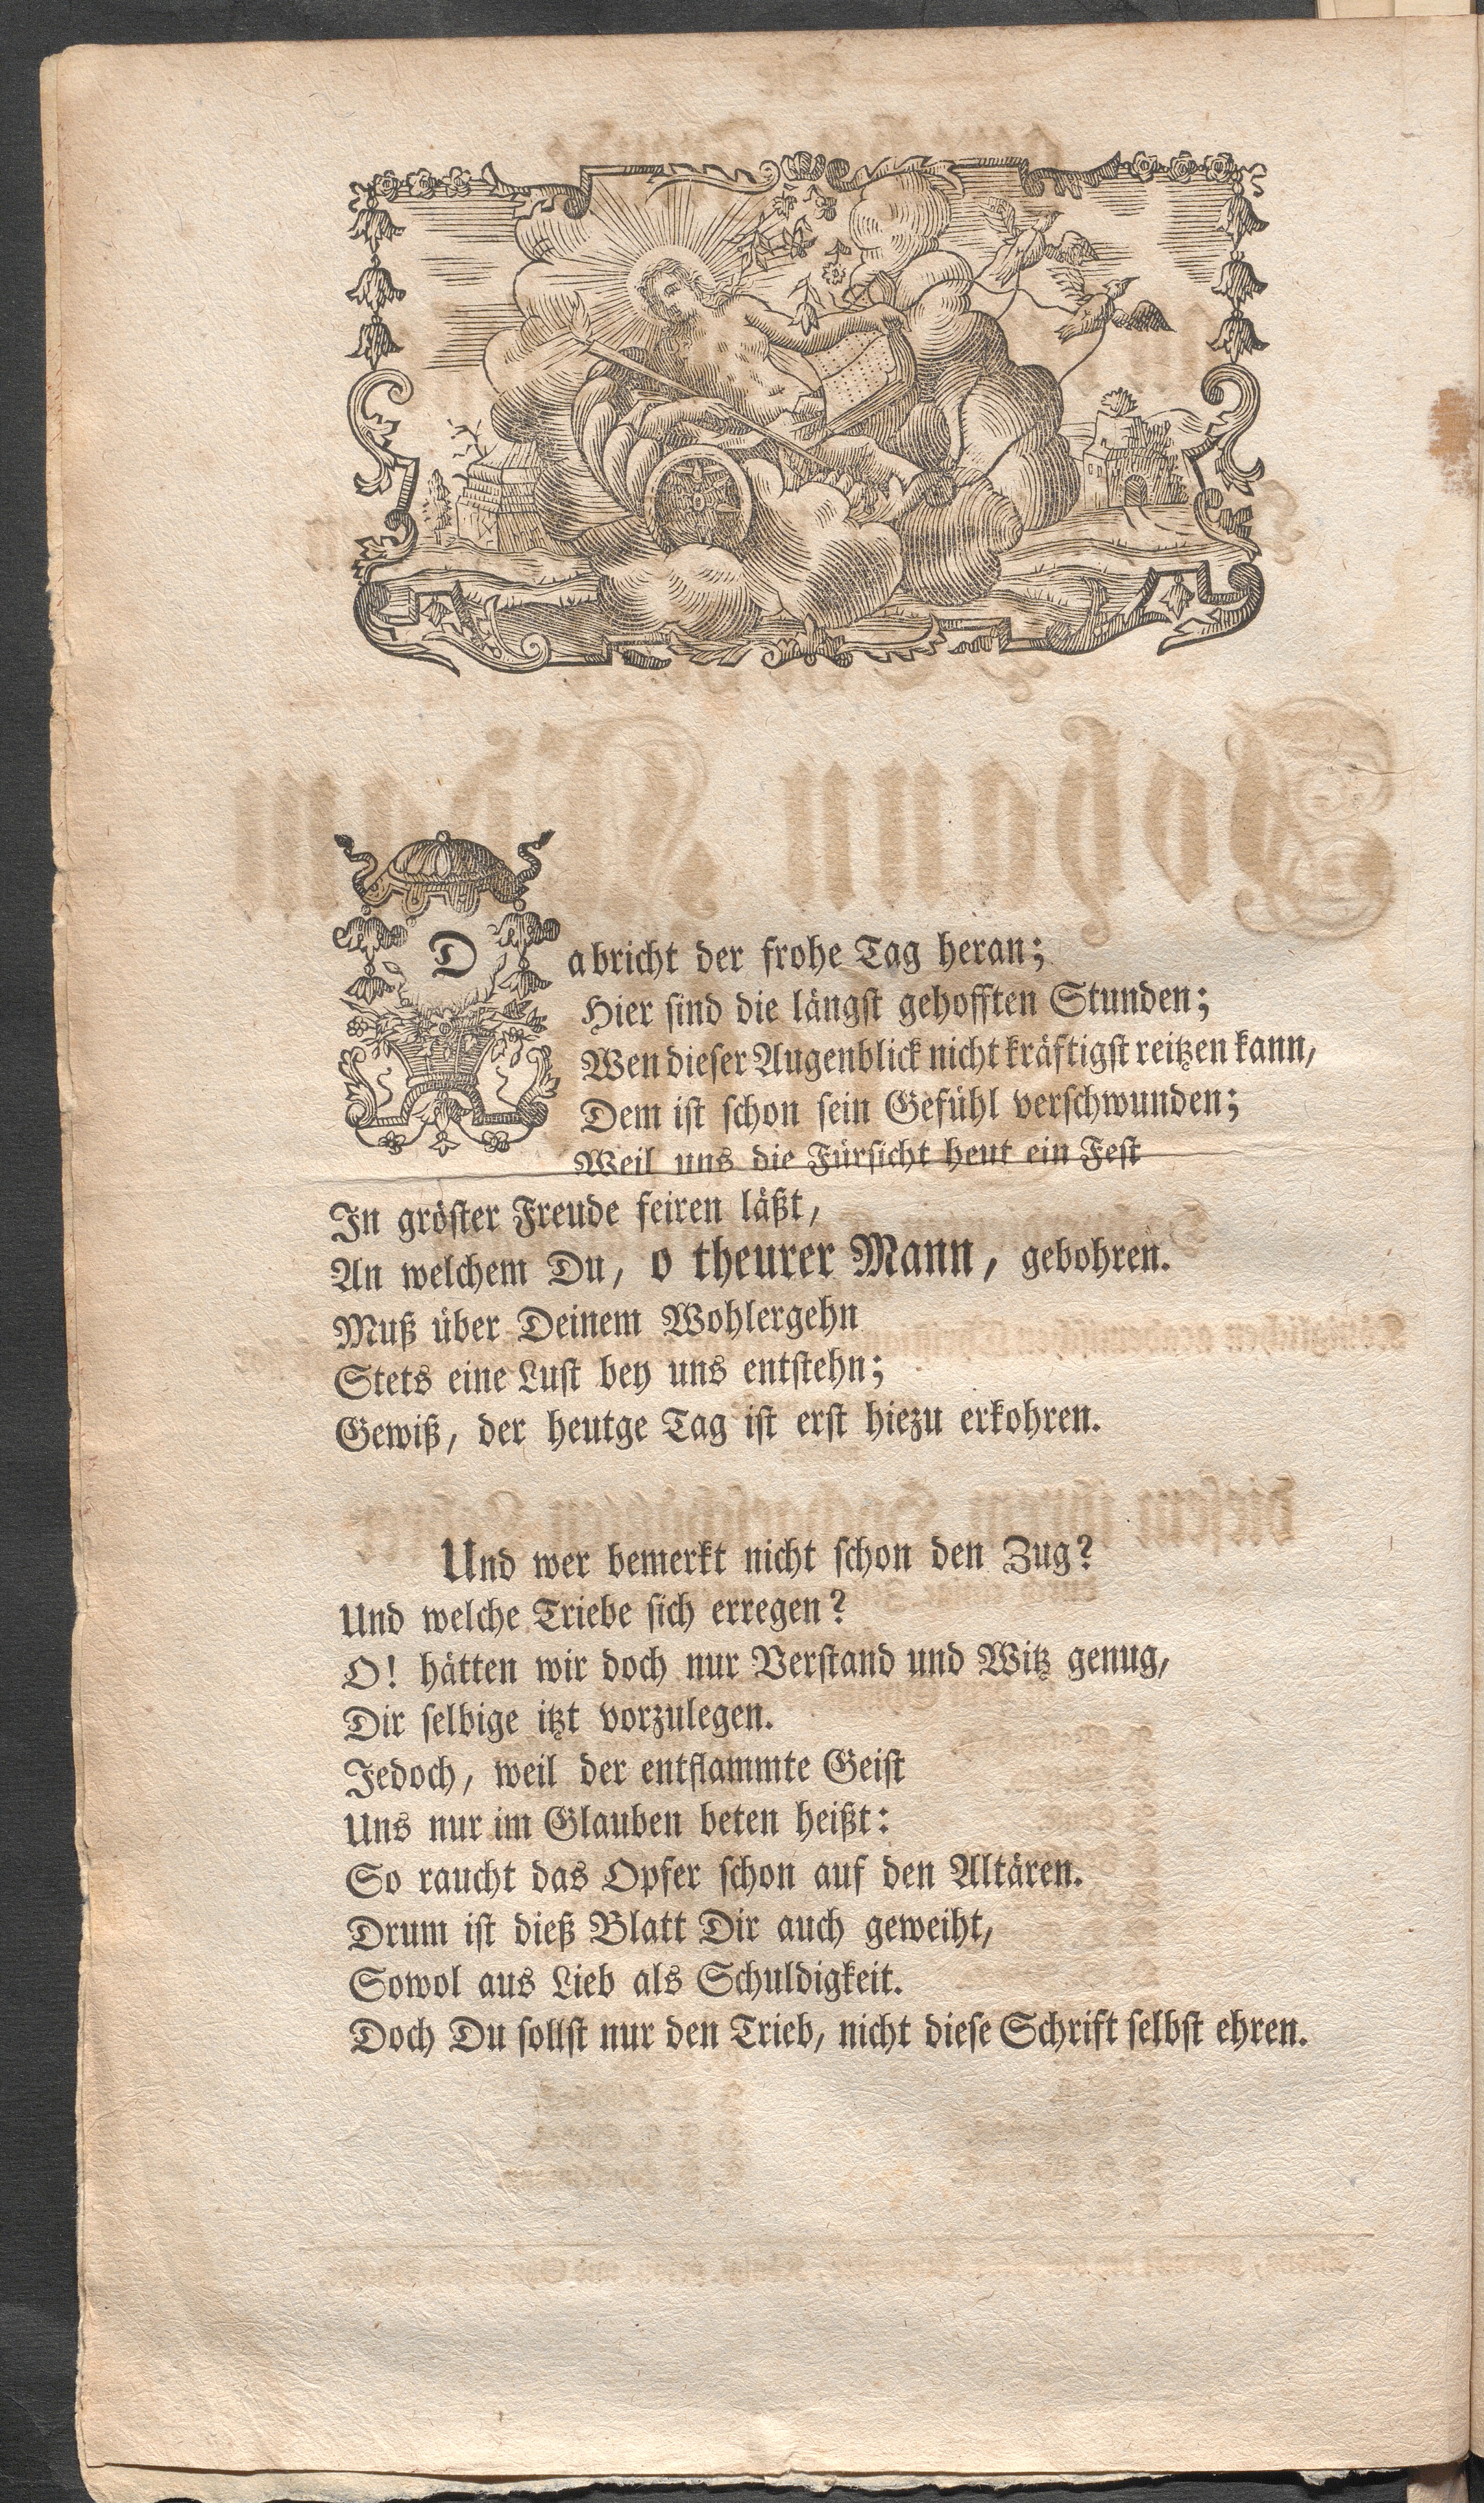 Da bricht der frohe Tag heran;
Hier sind die längst gehofften Stunden;
Wen dieser Augenblick nicht kräftigst reitzen kann,
Dem ist schon sein Gefühl verschwunden;
Weil uns die Fürsicht heut ein Fest
In gröster Freude feiren läßt,
An welchem Du, o theurer Mann, gebohren.
Muß über Deinem Wohlergehn
Stets eine Lust bey uns entstehn;
Gewiß, der heutge Tag ist erst hiezu erkohren.
Und wer bemerkt nicht schon den Zug?
Und welche Triebe sich erregen?
O! hätten wir doch nur Verstand und Witz genug,
Dir selbige itzt vorzulegen.
Jedoch, weil der entflammte Geist
Uns nur im Glauben beten heißt:
So raucht das Opfer schon auf den Altären.
Drum ist dieß Blatt Dir auch geweiht,
Sowol aus Lieb als Schuldigkeit.
Doch Du sollst nur den Trieb, nicht diese Schrift selbst ehren.